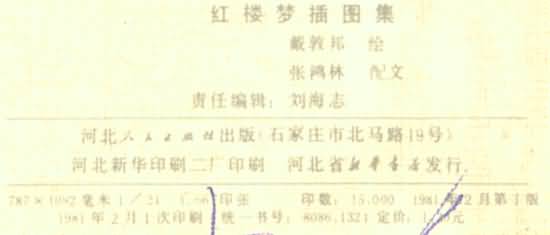 红楼梦插图集
戴敦邦 绘
张鸿林 配文
责任编辑: 刘海志
河北人民出版社出版(石家庄市北马路19号)
河北新华印刷二厂印刷 河北省新华书店发行
787×1092毫米 1/24 印张 印数: 15,000 1981年2月第1版
1981年2月1次印刷 统一书号: 8086.1321 定价: 元